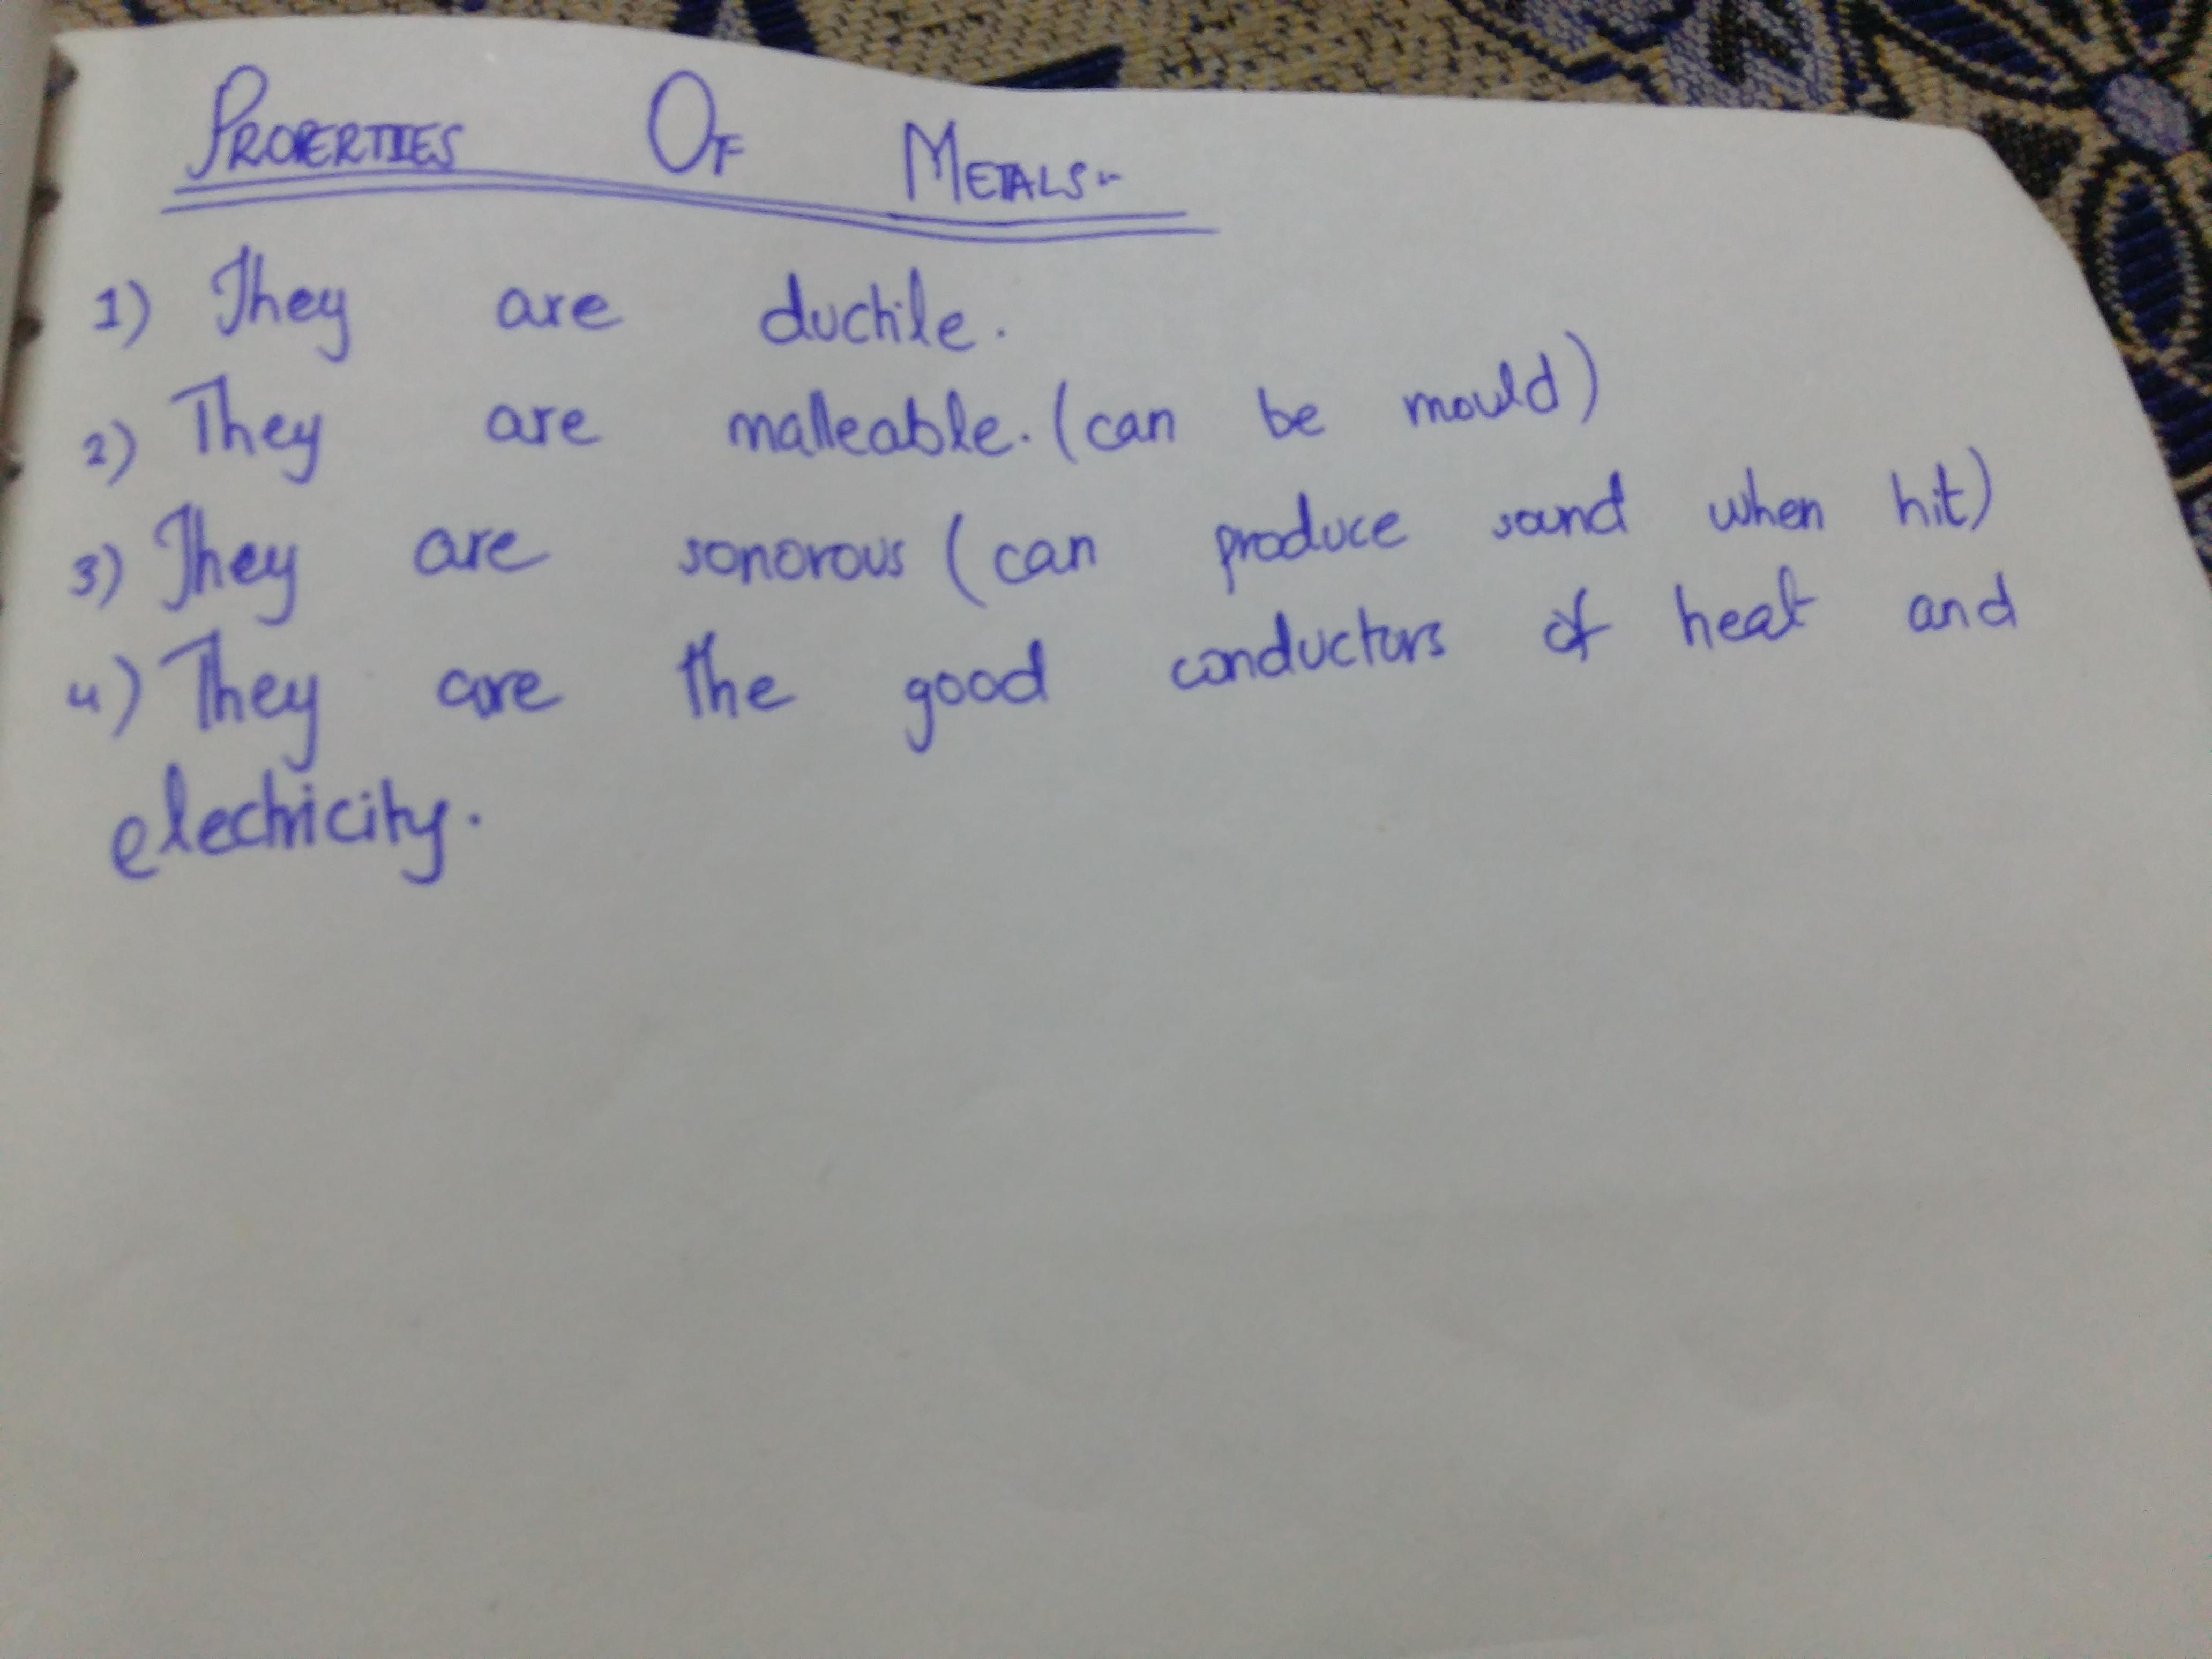 PROPERTIES OF METALS:-
1) They are ductile.
2) They are malleable. (can be mould)
3) They are sonorous (can produce sound when hit)
4) They are the good conductors of heat and
electricity.